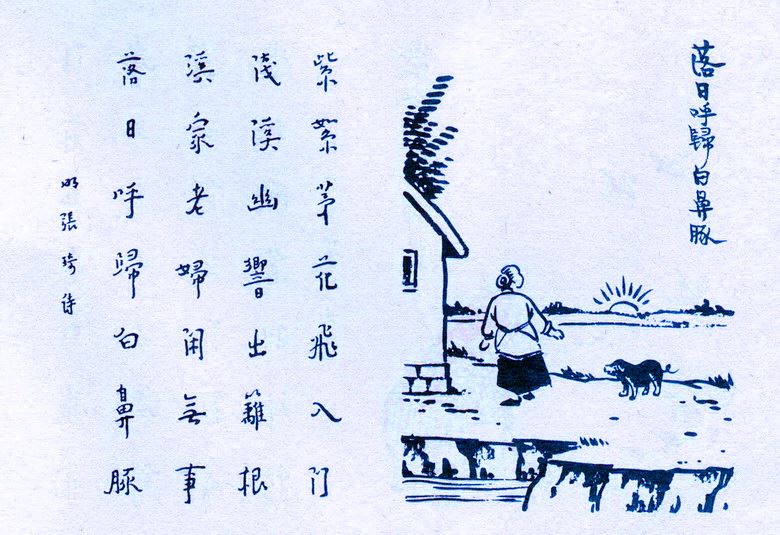 落日呼歸白鼻豚
紫絮茅花飛入门
淺溪幽響出籬根
溪家老婦闲無事
落日呼歸白鼻豚
明張琦詩